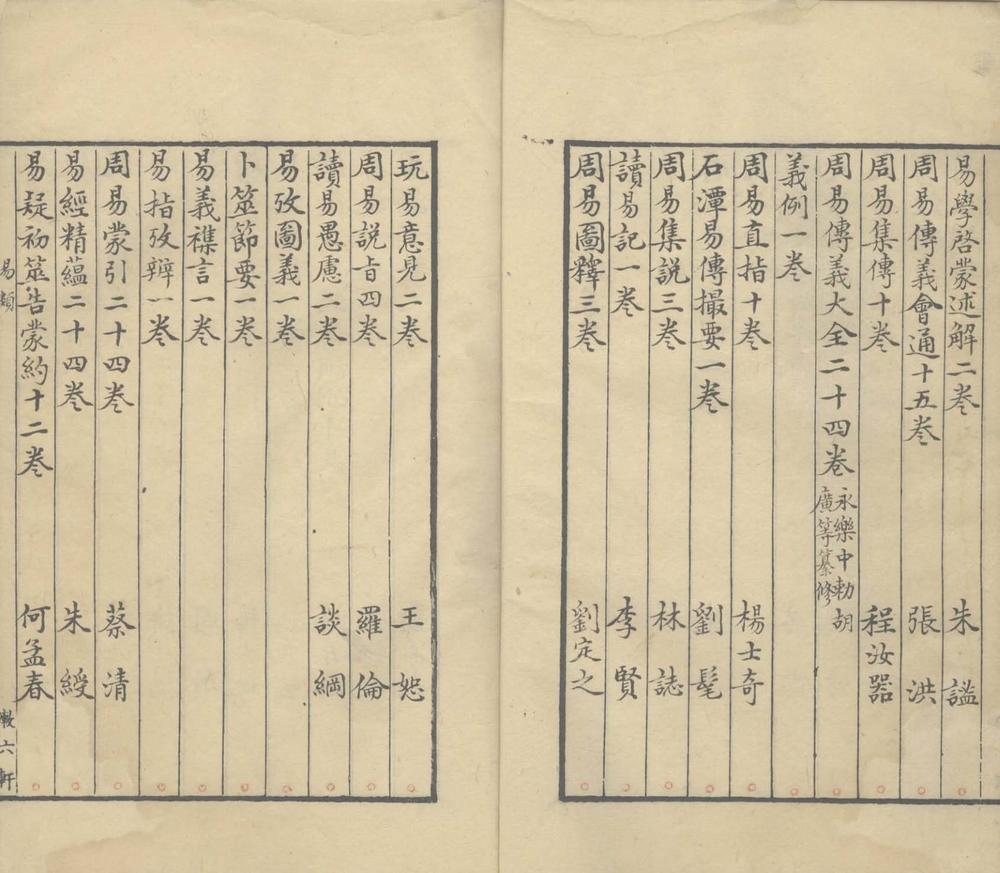 易學啓蒙述解二卷 朱謐
周易傳義會通十五卷 張洪
周易集傳十卷 程汝器
周易傳義大全二十四卷 永樂中勅胡
廣等纂修
義例一卷
周易直指十卷 楊士奇
石潭易傳撮要一卷 劉髦
周易集說三卷 林誌
讀易記一卷 李賢
周易圖釋三卷 劉定之
玩易意見二卷 王恕
周易說旨四卷 羅倫
讀易愚慮二卷 談綱
易攷圖義一卷
卜筮節要一卷
易義襍言一卷
易指攷辨一卷
周易蒙引二十四卷 蔡清
易經精蘊二十四卷 朱綬
易疑初筮告蒙約十二卷 何孟春
易類
六軒